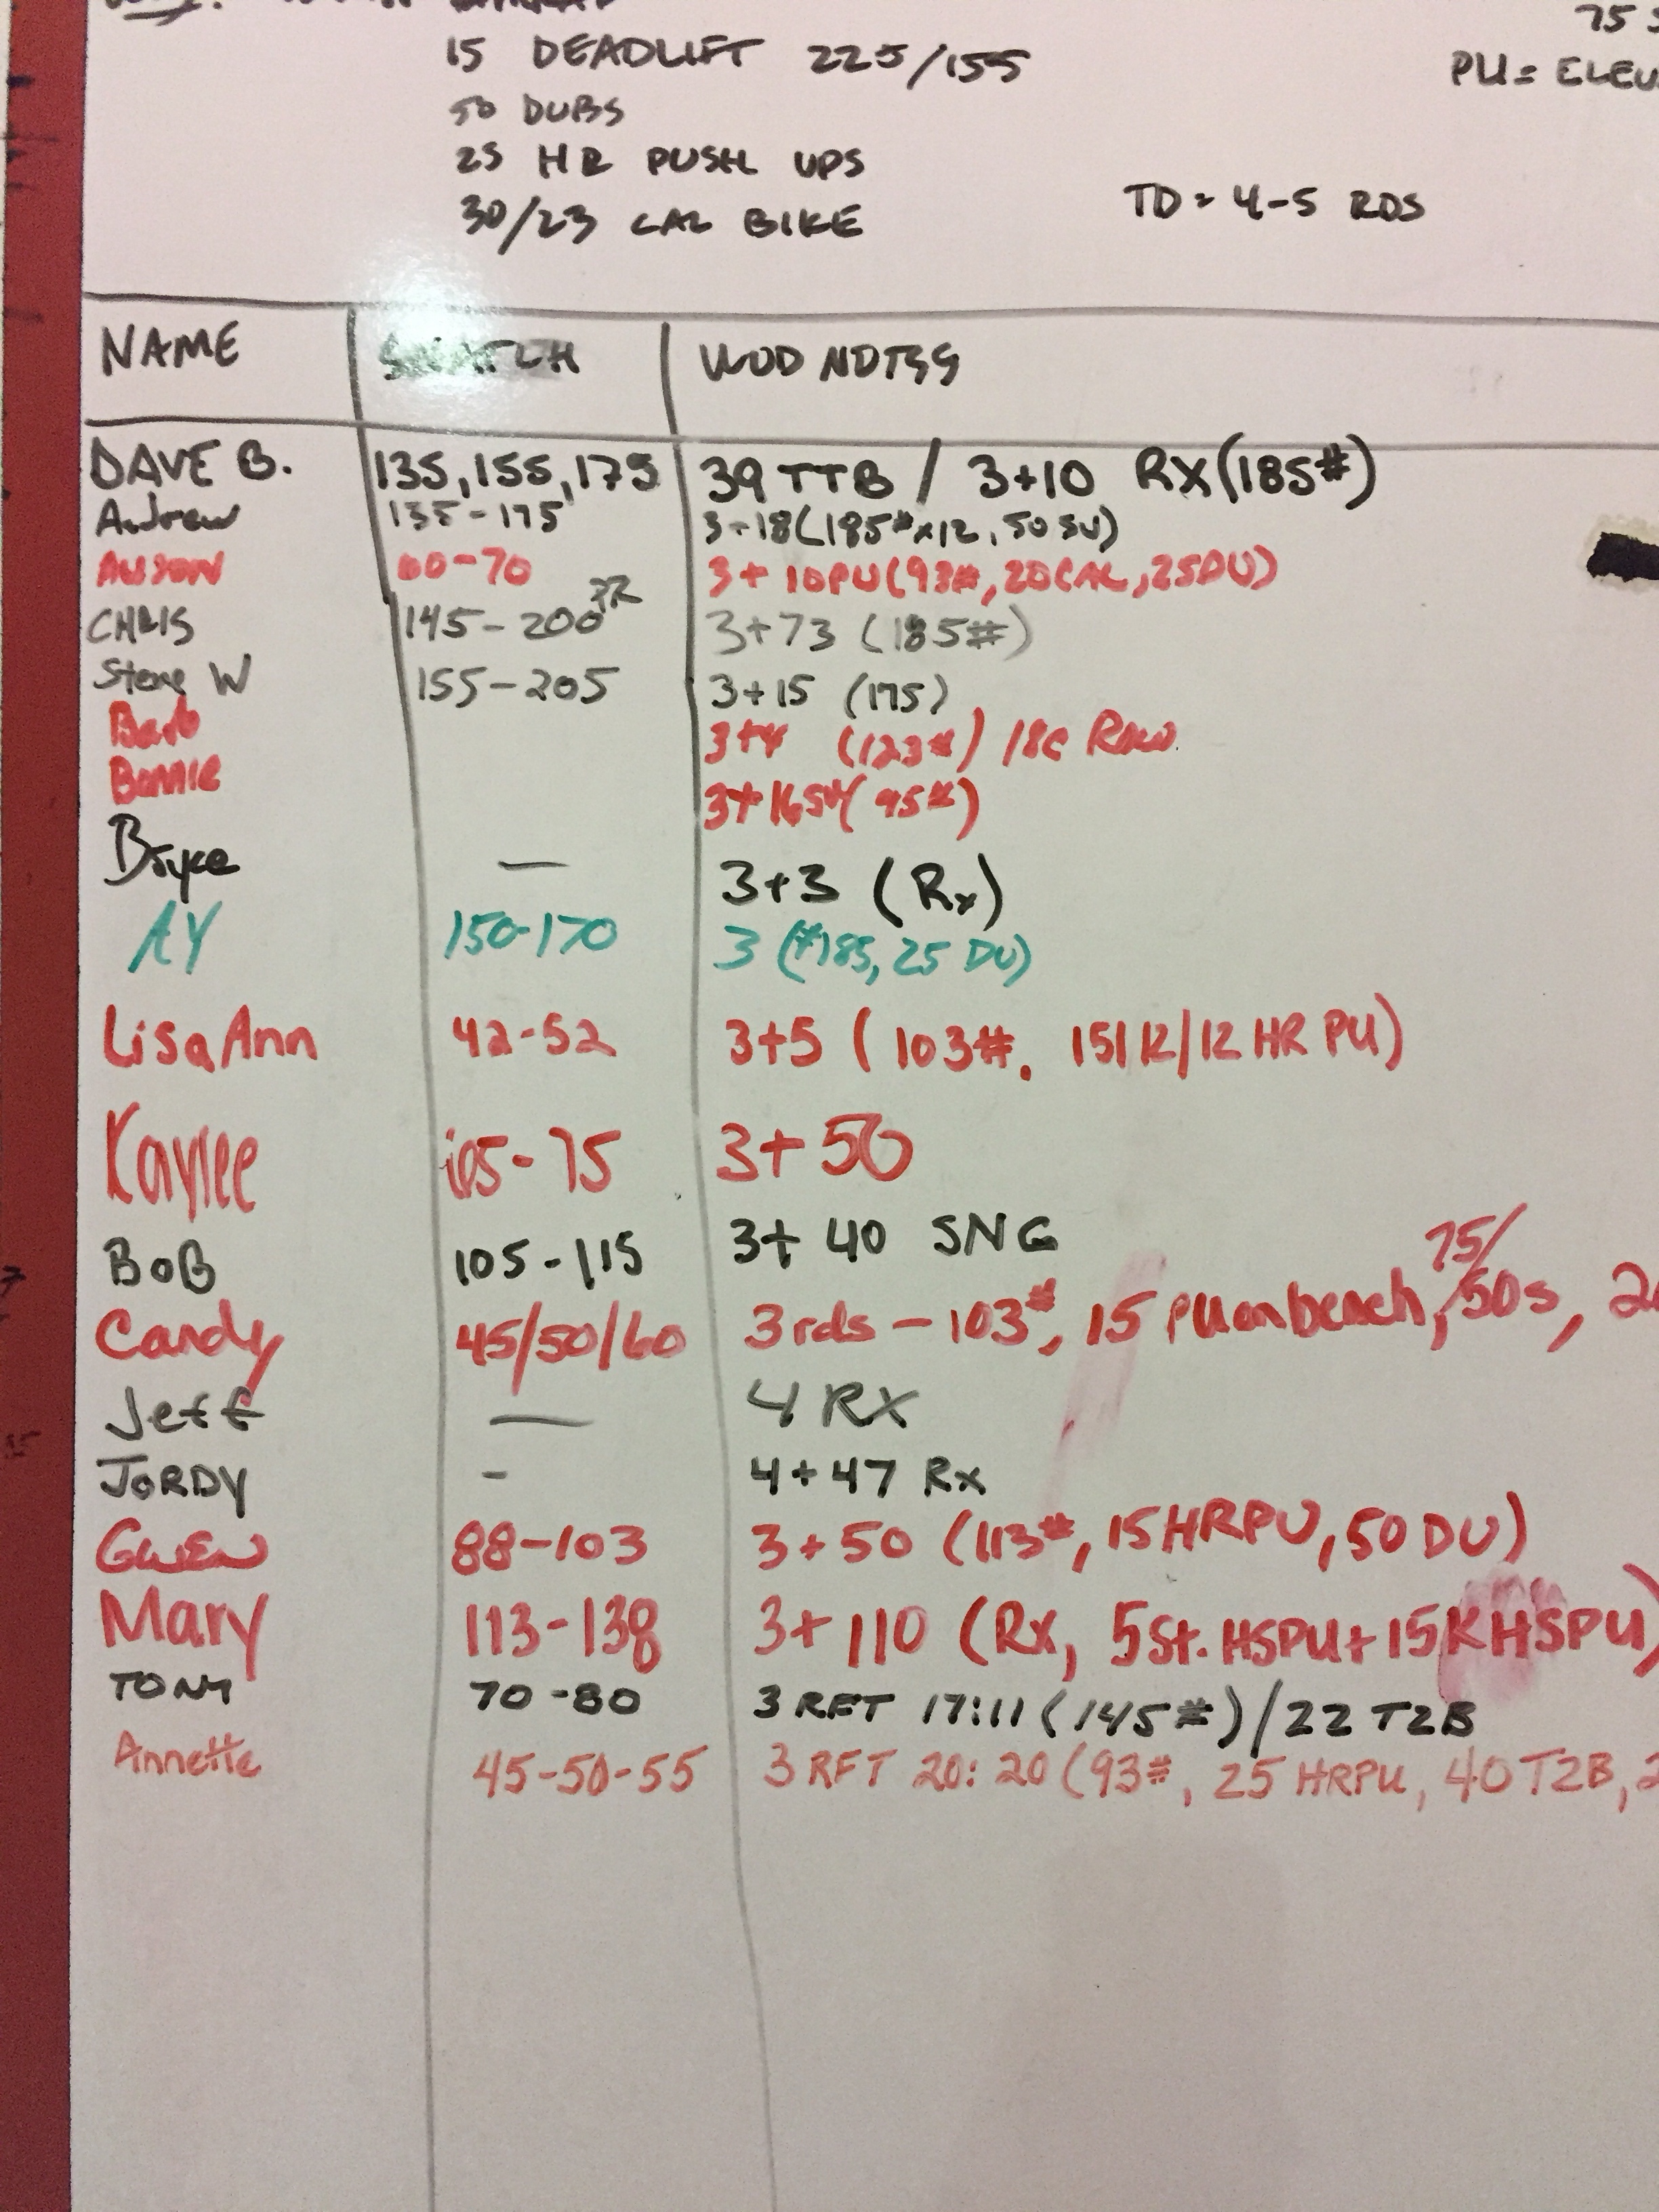 15 DEADLIFT 225/155
PU = ELEV
50 DUBS
25 HR PUSH UPS
30/23 CAL BIKE
TD = 4-5 RDS
NAME SNATCH WOD NOTES
DAVE B. 135,155,175 39 TTB / 3+10 RX(185#)
Andrew 135-175 3+18(185#x12, 50 SU)
60-70 3+10PU(93#, 20CAL, 25DU)
CHRIS 145-200 PR 3+73 (185#)
Steve W 155-205 3+15 (175)
Barb 3+4 (123#) 18C Row
Bonnie 3+16SU(95#)
Bryce — 3+3 (Rx)
AY 150-170 3 (#185, 25 DU)
LisaAnn 42-52 3+5 (103#. 15/12/12 HR PU)
Kaylee 75 3+50
BOB 105-115 3+40 SNG
75/
Candy 45/50/60 3rds - 103#, 15 PU on bench, 50s,
Jeff — 4 RX
JORDY - 4+47 Rx
GWEN 88-103 3+50 (113#, 15HRPU, 50 DU)
Mary 113-138 3+110 (Rx, 5St. HSPU+15KHSPU)
TONY 70-80 3 RFT 17:11 (145#)/22 T2B
Annette 45-50-55 3 RFT 20:20 (93#, 25 HRPU, 40 T2B,